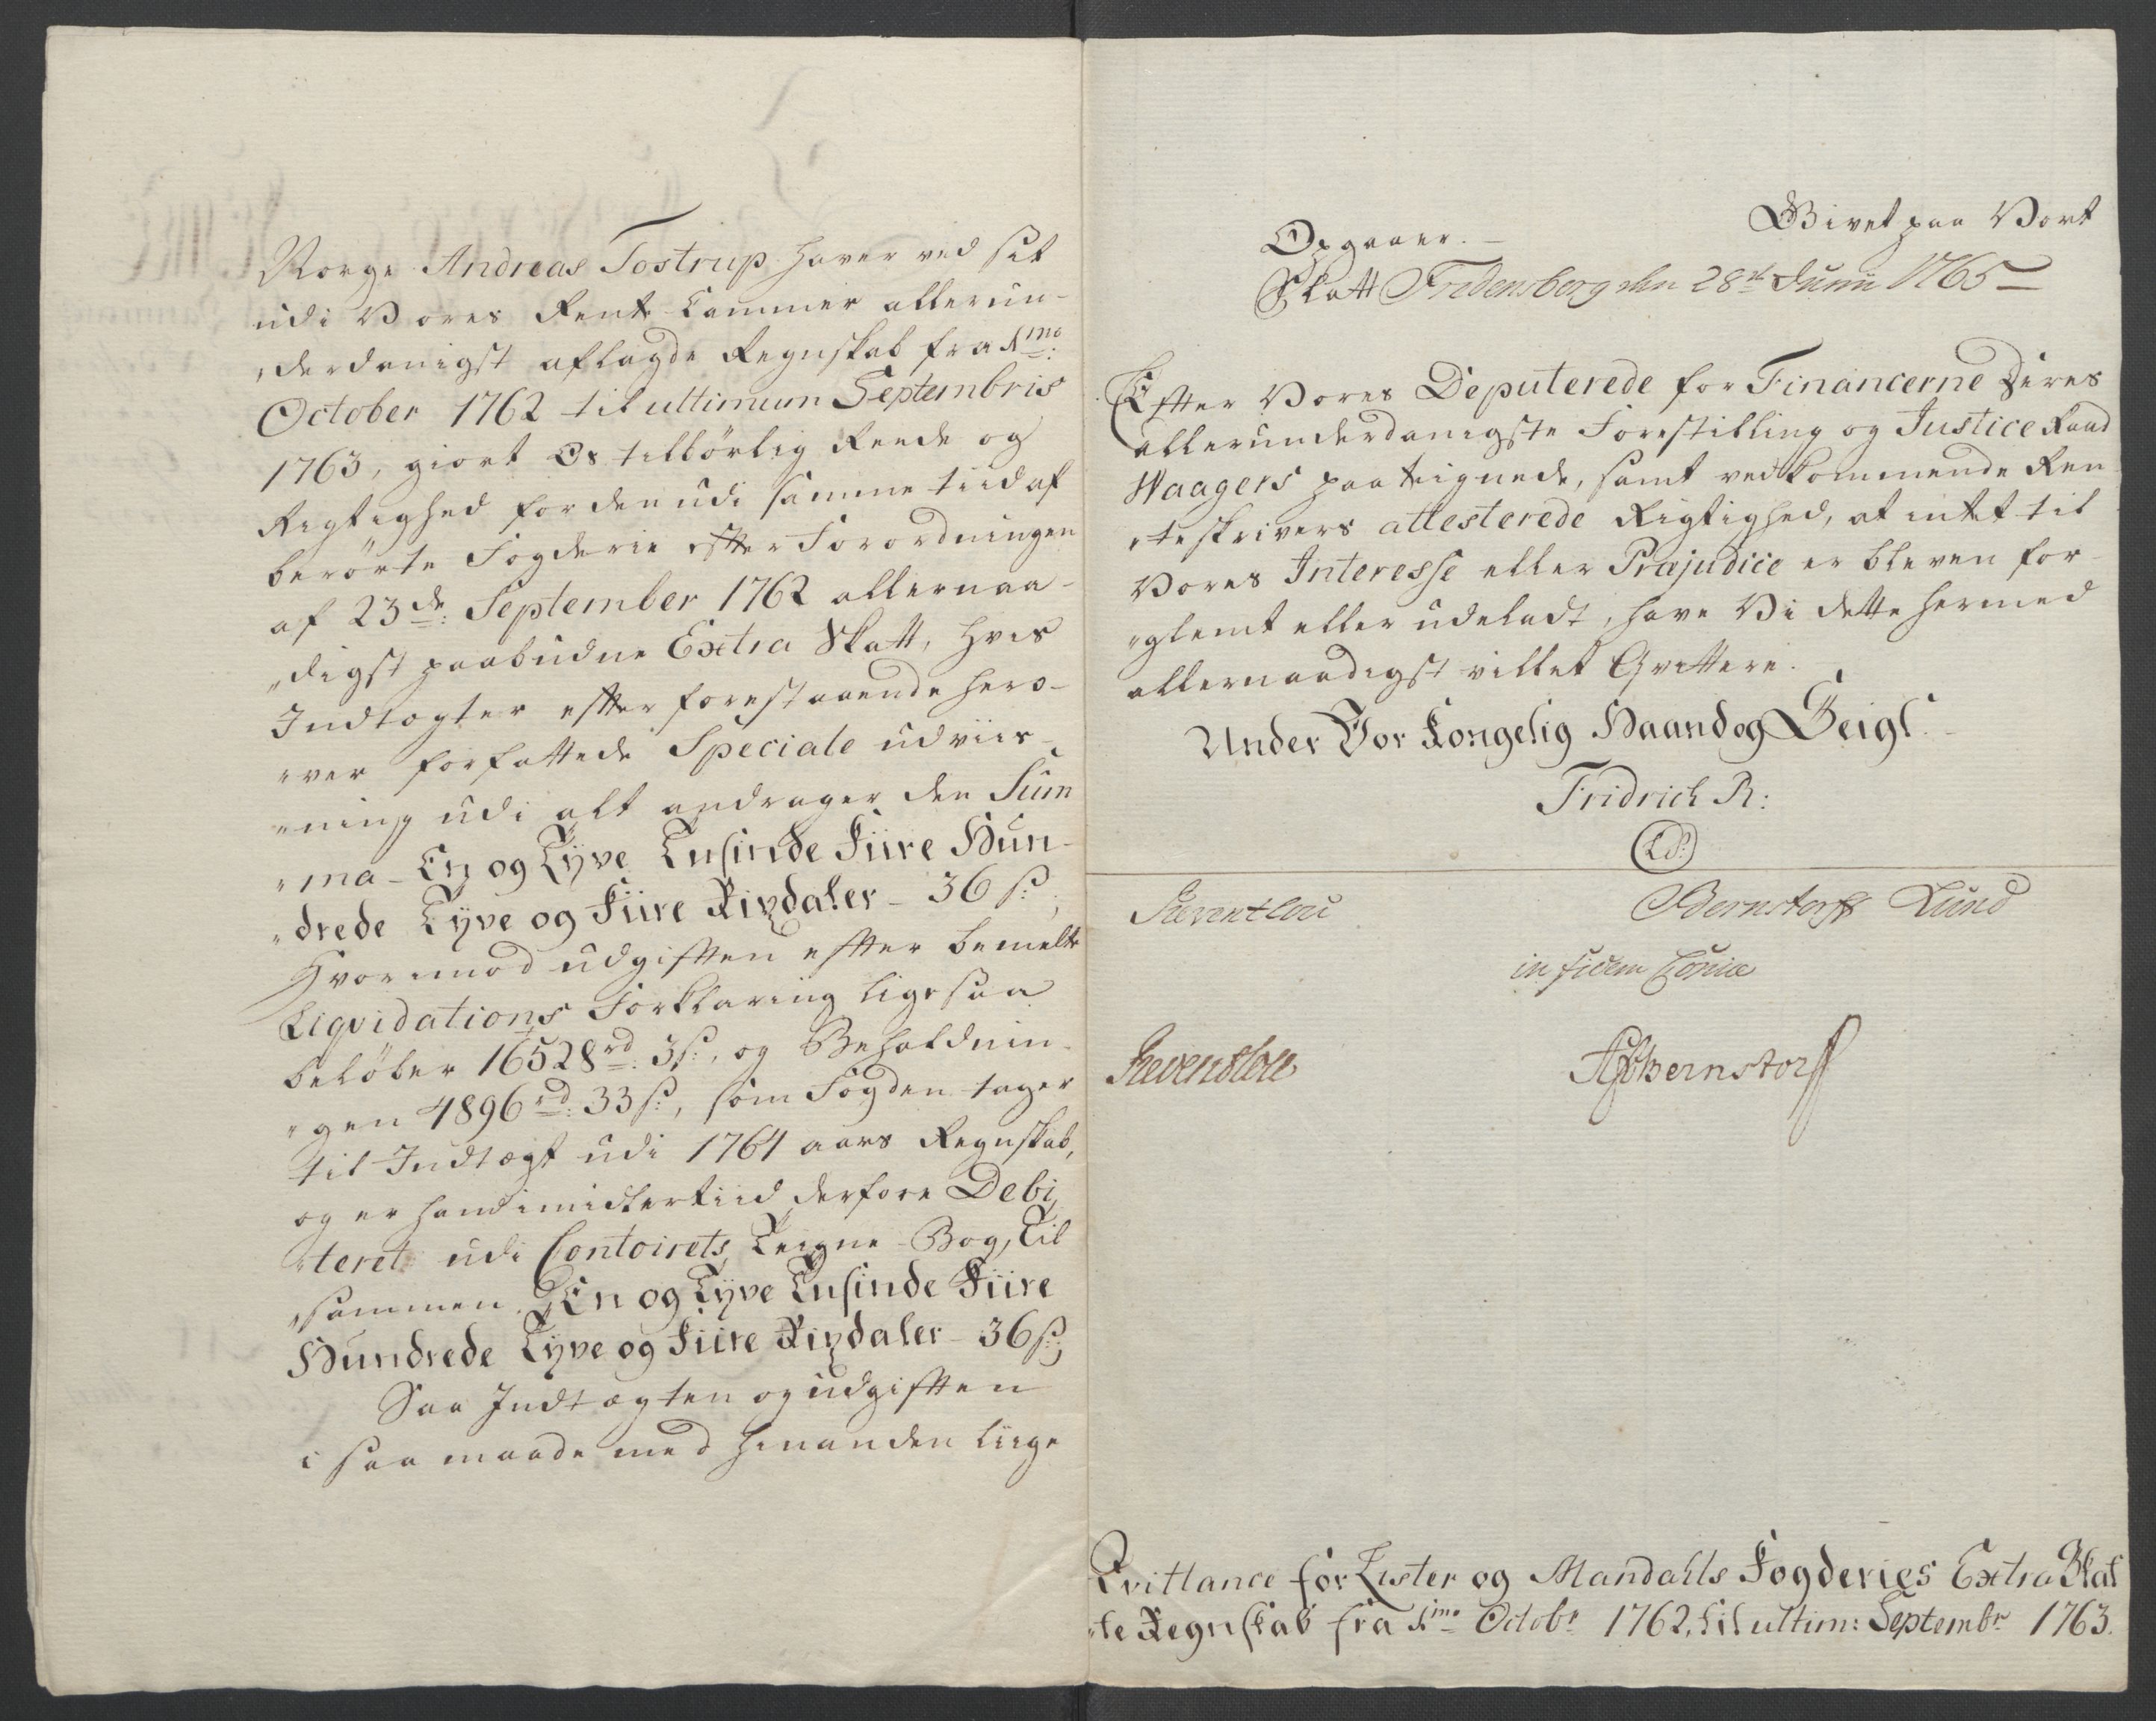 Norge Andreas Tostrup haver ved sit
udi Vores Rente-Cammer allerun-
„derdanigst aflagde Regnskab fra 1mo:
October 1762 til ultimum Septembris
1763, giort Os tilbörlig Reede og
Rigtighed for den udi samme tiid af
berörte Fogderie efter Forordningen
af 23de: September 1762 allernaa-
„digst paabudne Extra Skatt, hvis
Indtægter efter forestaaende her o-
„ver forfattede Speciale udviis-
„ning udi alt andrager den Sum
„ma - En og Tyve Tusinde Fiire Hun-
„drede Tyve og Fiire Rixdaler - 36 s:;
Hvorimod udgiften efter bemelte
Liqvidations Forklaring ligesaa
belöber 16528rd: 3s:, og Beholdnin-
„gen 4896rd: 33s:, som Fogden tager
til Indtægt udi 1764 aars Regnskab,
og er hand imidlertiid derfore Debi
„teret udi Contoirets Teigne-Bog, Til
„sammen En og Tyve Tusinde Fiire
Hundrede Tyve og Fiire Rixdaler - 36 s:;
Saa Indtægten og udgiften
i saa maade med hinanden liige
Opgaaer. - Givet paa Vort
Slott Fredensborg den 28de Junii 1765
Efter Vores Deputerede for Financerne Deres
allerunderdanigste Forestilling og Justice Raad
Waagers paateignede, samt vedkommende Ren
„teskrivers attesterede Rigtighed, at intet til
Vores Interesse eller Præjudice er bleven for-
„glemt eller udeladt, have Vi dette hermed
allernaadigst villet Qvittere.
Under Vor Kongelig Haand og Seigl.
Fridrich R:
(L.S.)
Reventlou Bernstorff Lund
in fidem Copiæ
Reventlou ABernstorff
Qvittance for Lister og Mandahls Fogderies Extra Skat
„te Regnskab fra 1mo Octobr 1762, til ultim: Septembr 1763.